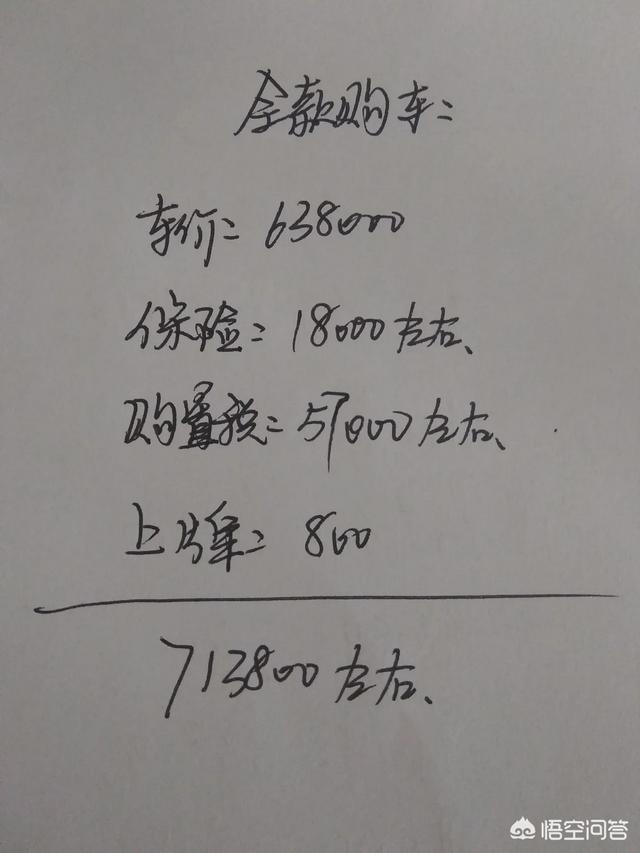 全款购车:
车价: 638000
保险: 18000左右、
购置税: 57000左右、
上牌: 800
713800左右、
悟空问答